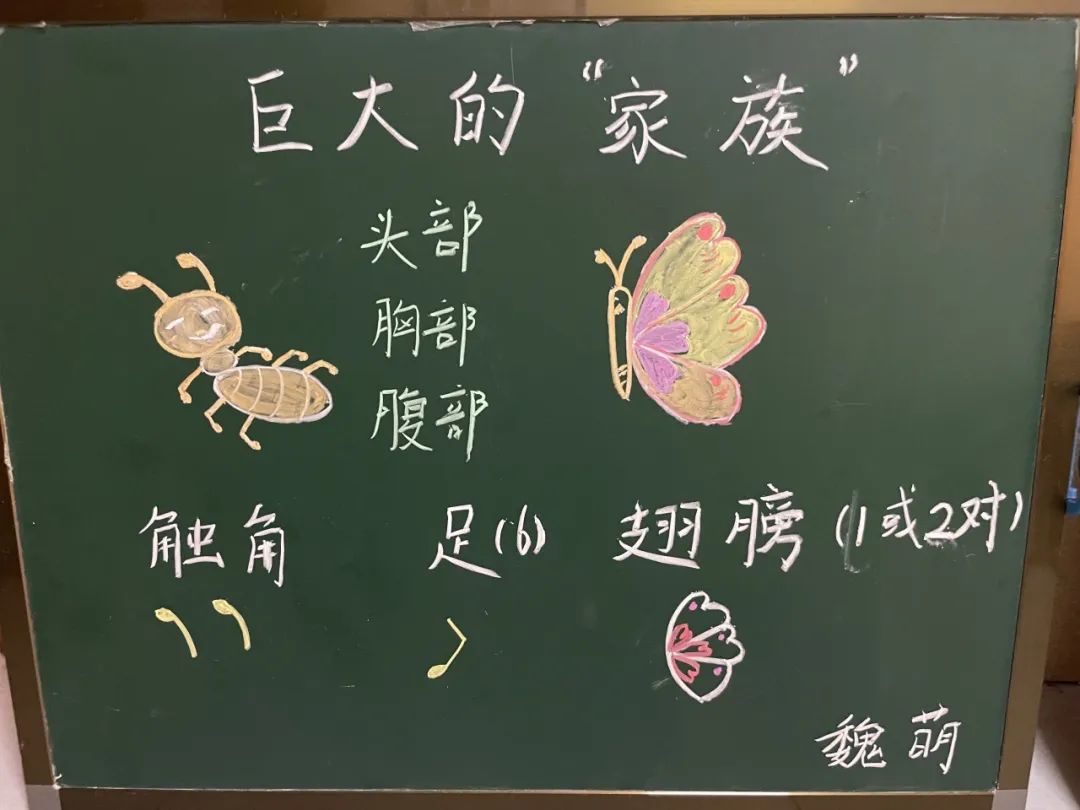 巨大的“家族”
头部
胸部
腹部
触角 足(6) 翅膀(1或2对)
魏萌